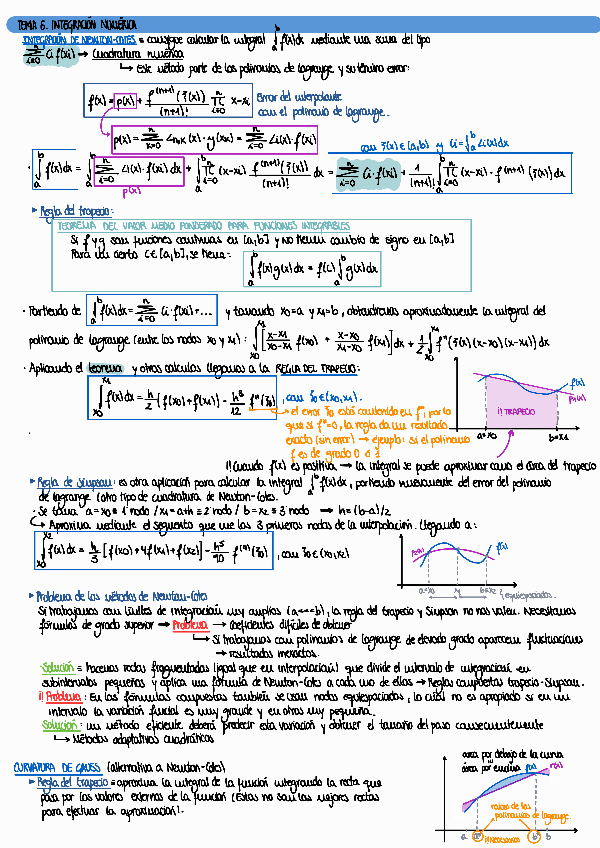 TEMA 6. INTEGRACIÓN NUMÉRICA
INTEGRACIÓN DE NEWTON-COTES = consigue calcular la integral ∫_a^b f(x)dx mediante una suma del tipo
∑_{i=0}^n Ci f(xi) → Cuadratura numérica
↳ Este método parte de los polinomios de Lagrange y su término error:
f(x) = p(x) + f^(n+1)(ξ(x))/(n+1)! ∏_{i=0}^n x-xi
Error del interpolante
con el polinomio de Lagrange.
p(x) = ∑_{k=0}^n L_{n,k}(x)·y(xk) = ∑_{i=0}^n Li(x)·f(xi)
con ξ(x) ∈ [a,b] y Ci = ∫_a^b Li(x)dx
· ∫_a^b f(x)dx = ∫_a^b ∑_{i=0}^n Li(x)·f(xi)dx + ∫_a^b ∏_{i=0}^n (x-xi) f^(n+1)(ξ(x))/(n+1)! dx = ∑_{i=0}^n Ci·f(xi) + 1/(n+1)! ∫_a^b ∏_{i=0}^n (x-xi)·f^(n+1)(ξ(x))dx
p(x)
▸ Regla del trapecio:
TEOREMA DEL VALOR MEDIO PONDERADO PARA FUNCIONES INTEGRABLES
Si f y g son funciones continuas en [a,b] y no tienen cambio de signo en [a,b]
Para un cierto C∈[a,b], se tiene: ∫_a^b f(x)g(x)dx = f(c)∫_a^b g(x)dx
· Partiendo de ∫_a^b f(x)dx = ∑_{i=0}^n Ci·f(xi)+... y tomando x0=a y x1=b, obtendremos aproximadamente la integral del
polinomio de Lagrange (entre los nodos x0 y x1): ∫_{x0}^{x1} [x-x1/x0-x1 f(x0) + x-x0/x1-x0 f(x1)]dx + 1/2 ∫_{x0}^{x1} f''(ξ(x))(x-x0)(x-x1)dx
· Aplicando el teorema y otros cálculos llegamos a la REGLA DEL TRAPECIO:
∫_{x0}^{x1} f(x)dx = h/2 [f(x0)+f(x1)] - h³/12 f''(ξ0) , con ξ0∈(x0,x1).
→ el error ξ0 está contenido en f'', por lo
que si f''=0, la regla da un resultado
exacto (sin error) → ejemplo: si el polinomio
f es de grado 0 o 1
f(x)
P1(x)
i) TRAPECIO
a=x0
b=x1
i) Cuando f(x) es positiva → la integral se puede aproximar como el área del trapecio
▸ Regla de Simpson: es otra aplicación para calcular la integral ∫_a^b f(x)dx, partiendo nuevamente del error del polinomio
de Lagrange (otro tipo de cuadratura de Newton-Cotes).
· Se toma a=x0 ≡ 1 nodo / x1=a+h ≡ 2 nodo / b=x2 ≡ 3 nodo → h=(b-a)/2
↳ Aproxima mediante el segmento que une los 3 primeros nodos de la interpolación. Llegando a:
∫_{x0}^{x2} f(x)dx = h/3 [f(x0)+4f(x1)+f(x2)] - h⁵/90 f^(4)(ξ0) , con ξ0∈(x0,x2)
P2(x)
f(x)
a=x0
x1
b=x2
equiespaciados.
▸ Problema de los métodos de Newton-Cotes
Si trabajamos con límites de integración muy amplios (a<<<b), la regla del trapecio y Simpson no nos valen. Necesitamos
fórmulas de grado superior → Problema → Coeficientes difíciles de obtener
↳ Si trabajamos con polinomios de Lagrange de elevado grado aparecen fluctuaciones
→ resultados inexactos.
Solución = Hacemos redes fragmentadas (igual que en interpolación) que divide el intervalo de integración en
subintervalos pequeños y aplica una fórmula de Newton-Cotes a cada uno de ellos → Reglas compuestas trapecio-Simpson.
i) Problema: En las fórmulas compuestas también se usan nodos equiespaciados, lo cual no es apropiado si en un
intervalo la variación funcial es muy grande y en otros muy pequeña.
Solución: un método eficiente deberá predecir esta variación y obtener el tamaño del paso consecuentemente
↳ Métodos adaptativos cuadráticos
CURVATURA DE GAUSS (alternativa a Newton-Cotes)
▸ Regla del trapecio = aproxima la integral de la función integrando la recta que
pasa por los valores externos de la función (Estas no son las mejores rectas
para efectuar la aproximación).
área por debajo de la curva
área por encima
f(x)
P1(x)
raíces de los
polinomios de Lagrange.
a
b